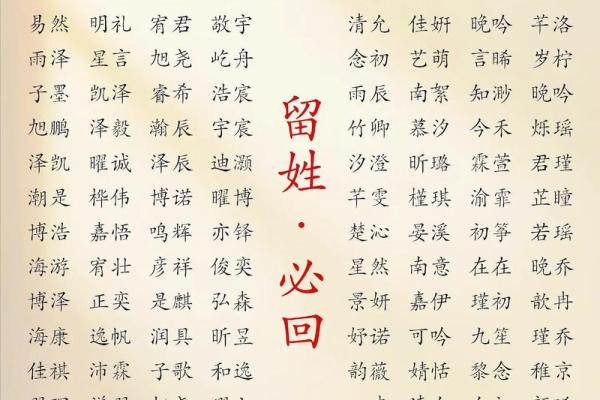 易然 明礼 宥君 敬宇
雨泽 星言 旭尧 屹舟
子墨 凯泽 睿希 浩宸
旭鹏 泽毅 瀚辰 宇宸
泽凯 曜诚 泽辰 迪灏
潮是 桦伟 博诺 曜博
博浩 嘉悟 鸣辉 亦铎
海游 宥壮 彦祥 俊奕
博泽 正奕 是麒 弘森
海康 逸帆 润具 昕昱
佳祺 沛霖 子歌 和逸
留姓·必回
清允 佳妍 晚吟 芊洛
念初 艺萌 言晞 岁柠
雨辰 南絮 知渺 晚吟
竹卿 慕汐 今禾 烁瑶
汐澄 昕璐 霖萱 君瑾
芊雯 槿琪 渝霏 芷瞳
楚沁 晏溪 初筝 若瑶
星然 南意 在在 晚乔
景妍 嘉伊 瑾初 歆冉
妤诺 可吟 九笙 瑾乔
韵薇 婧恬 黎念 稚京